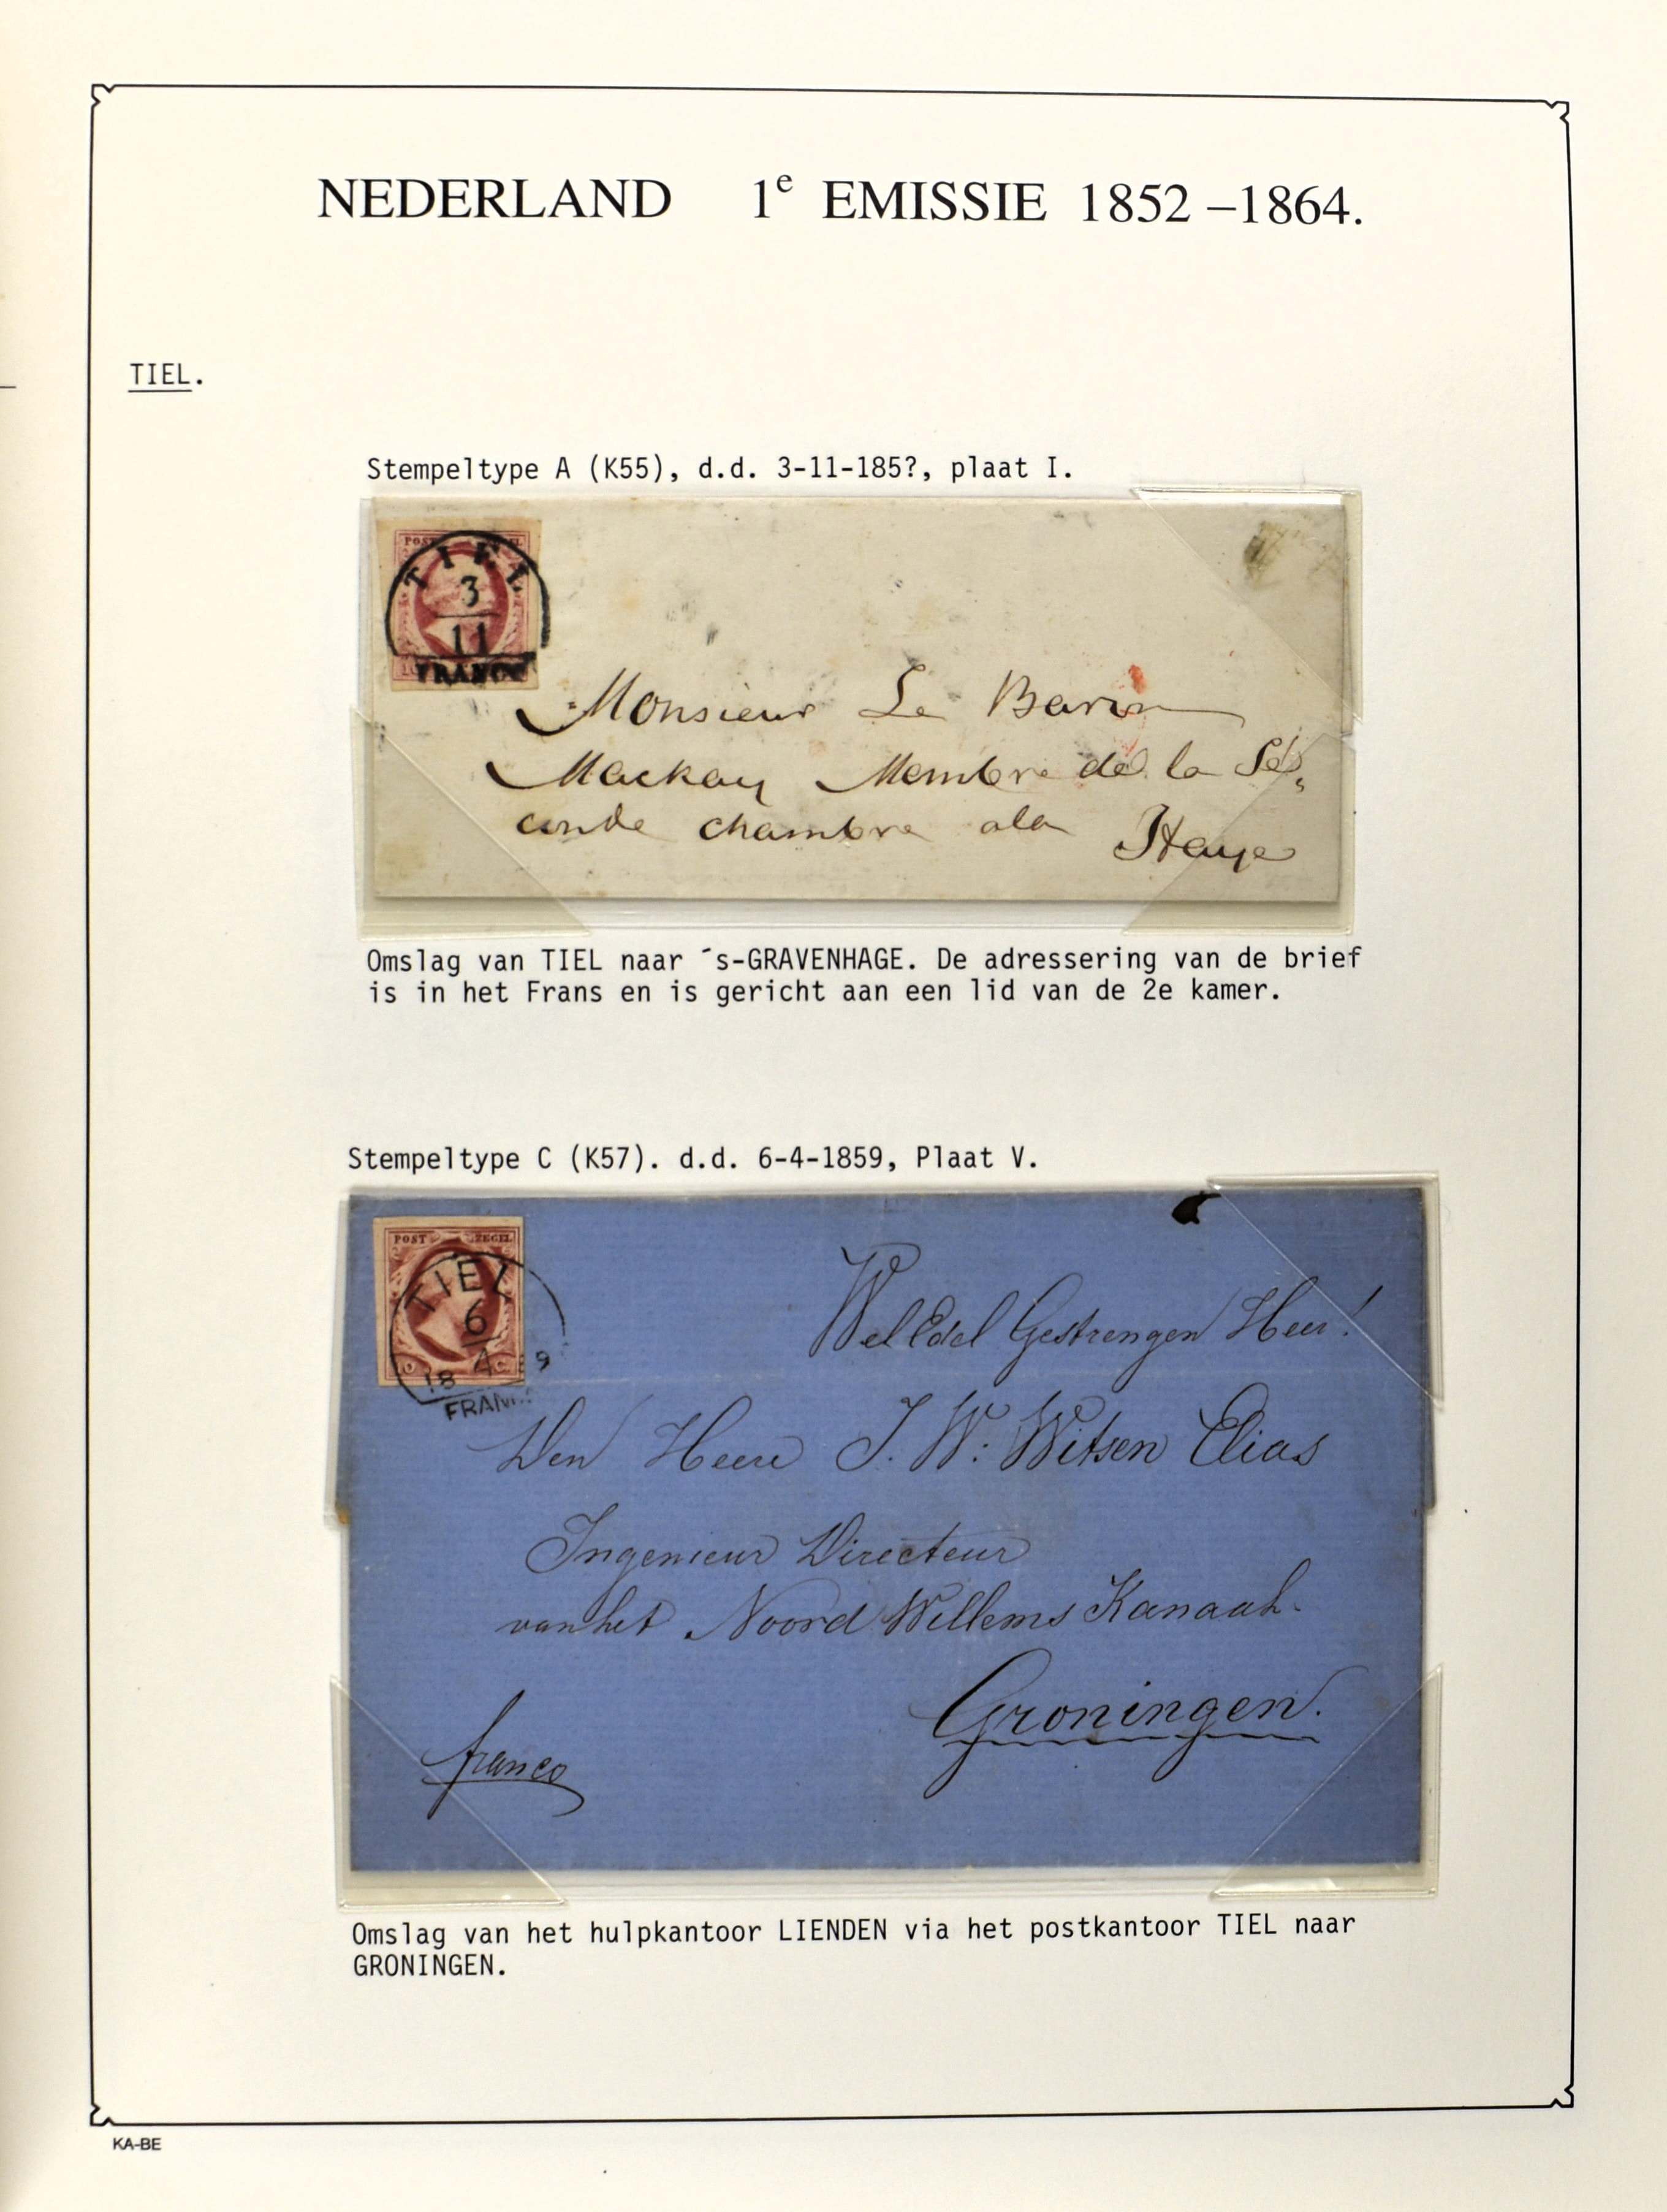 NEDERLAND 1e EMISSIE 1852 –1864.
TIEL.
Stempeltype A (K55), d.d. 3-11-185?, plaat I.
POST ZEGEL
TIEL
3
11
FRANCO
Monsieur Le Baron
Mackay Membre de la Se„
conde chambre a la
Haye
Omslag van TIEL naar ´s-GRAVENHAGE. De adressering van de brief
is in het Frans en is gericht aan een lid van de 2e kamer.
Stempeltype C (K57). d.d. 6-4-1859, Plaat V.
POST ZEGEL
TIEL
6
4
18 9
FRAN
WelEdel Gestrengen Heer!
Den Heere J. W: Witsen Elias
Ingenieur Directeur
van het Noord Willems Kanaal.
Groningen.
franco
Omslag van het hulpkantoor LIENDEN via het postkantoor TIEL naar
GRONINGEN.
KA-BE